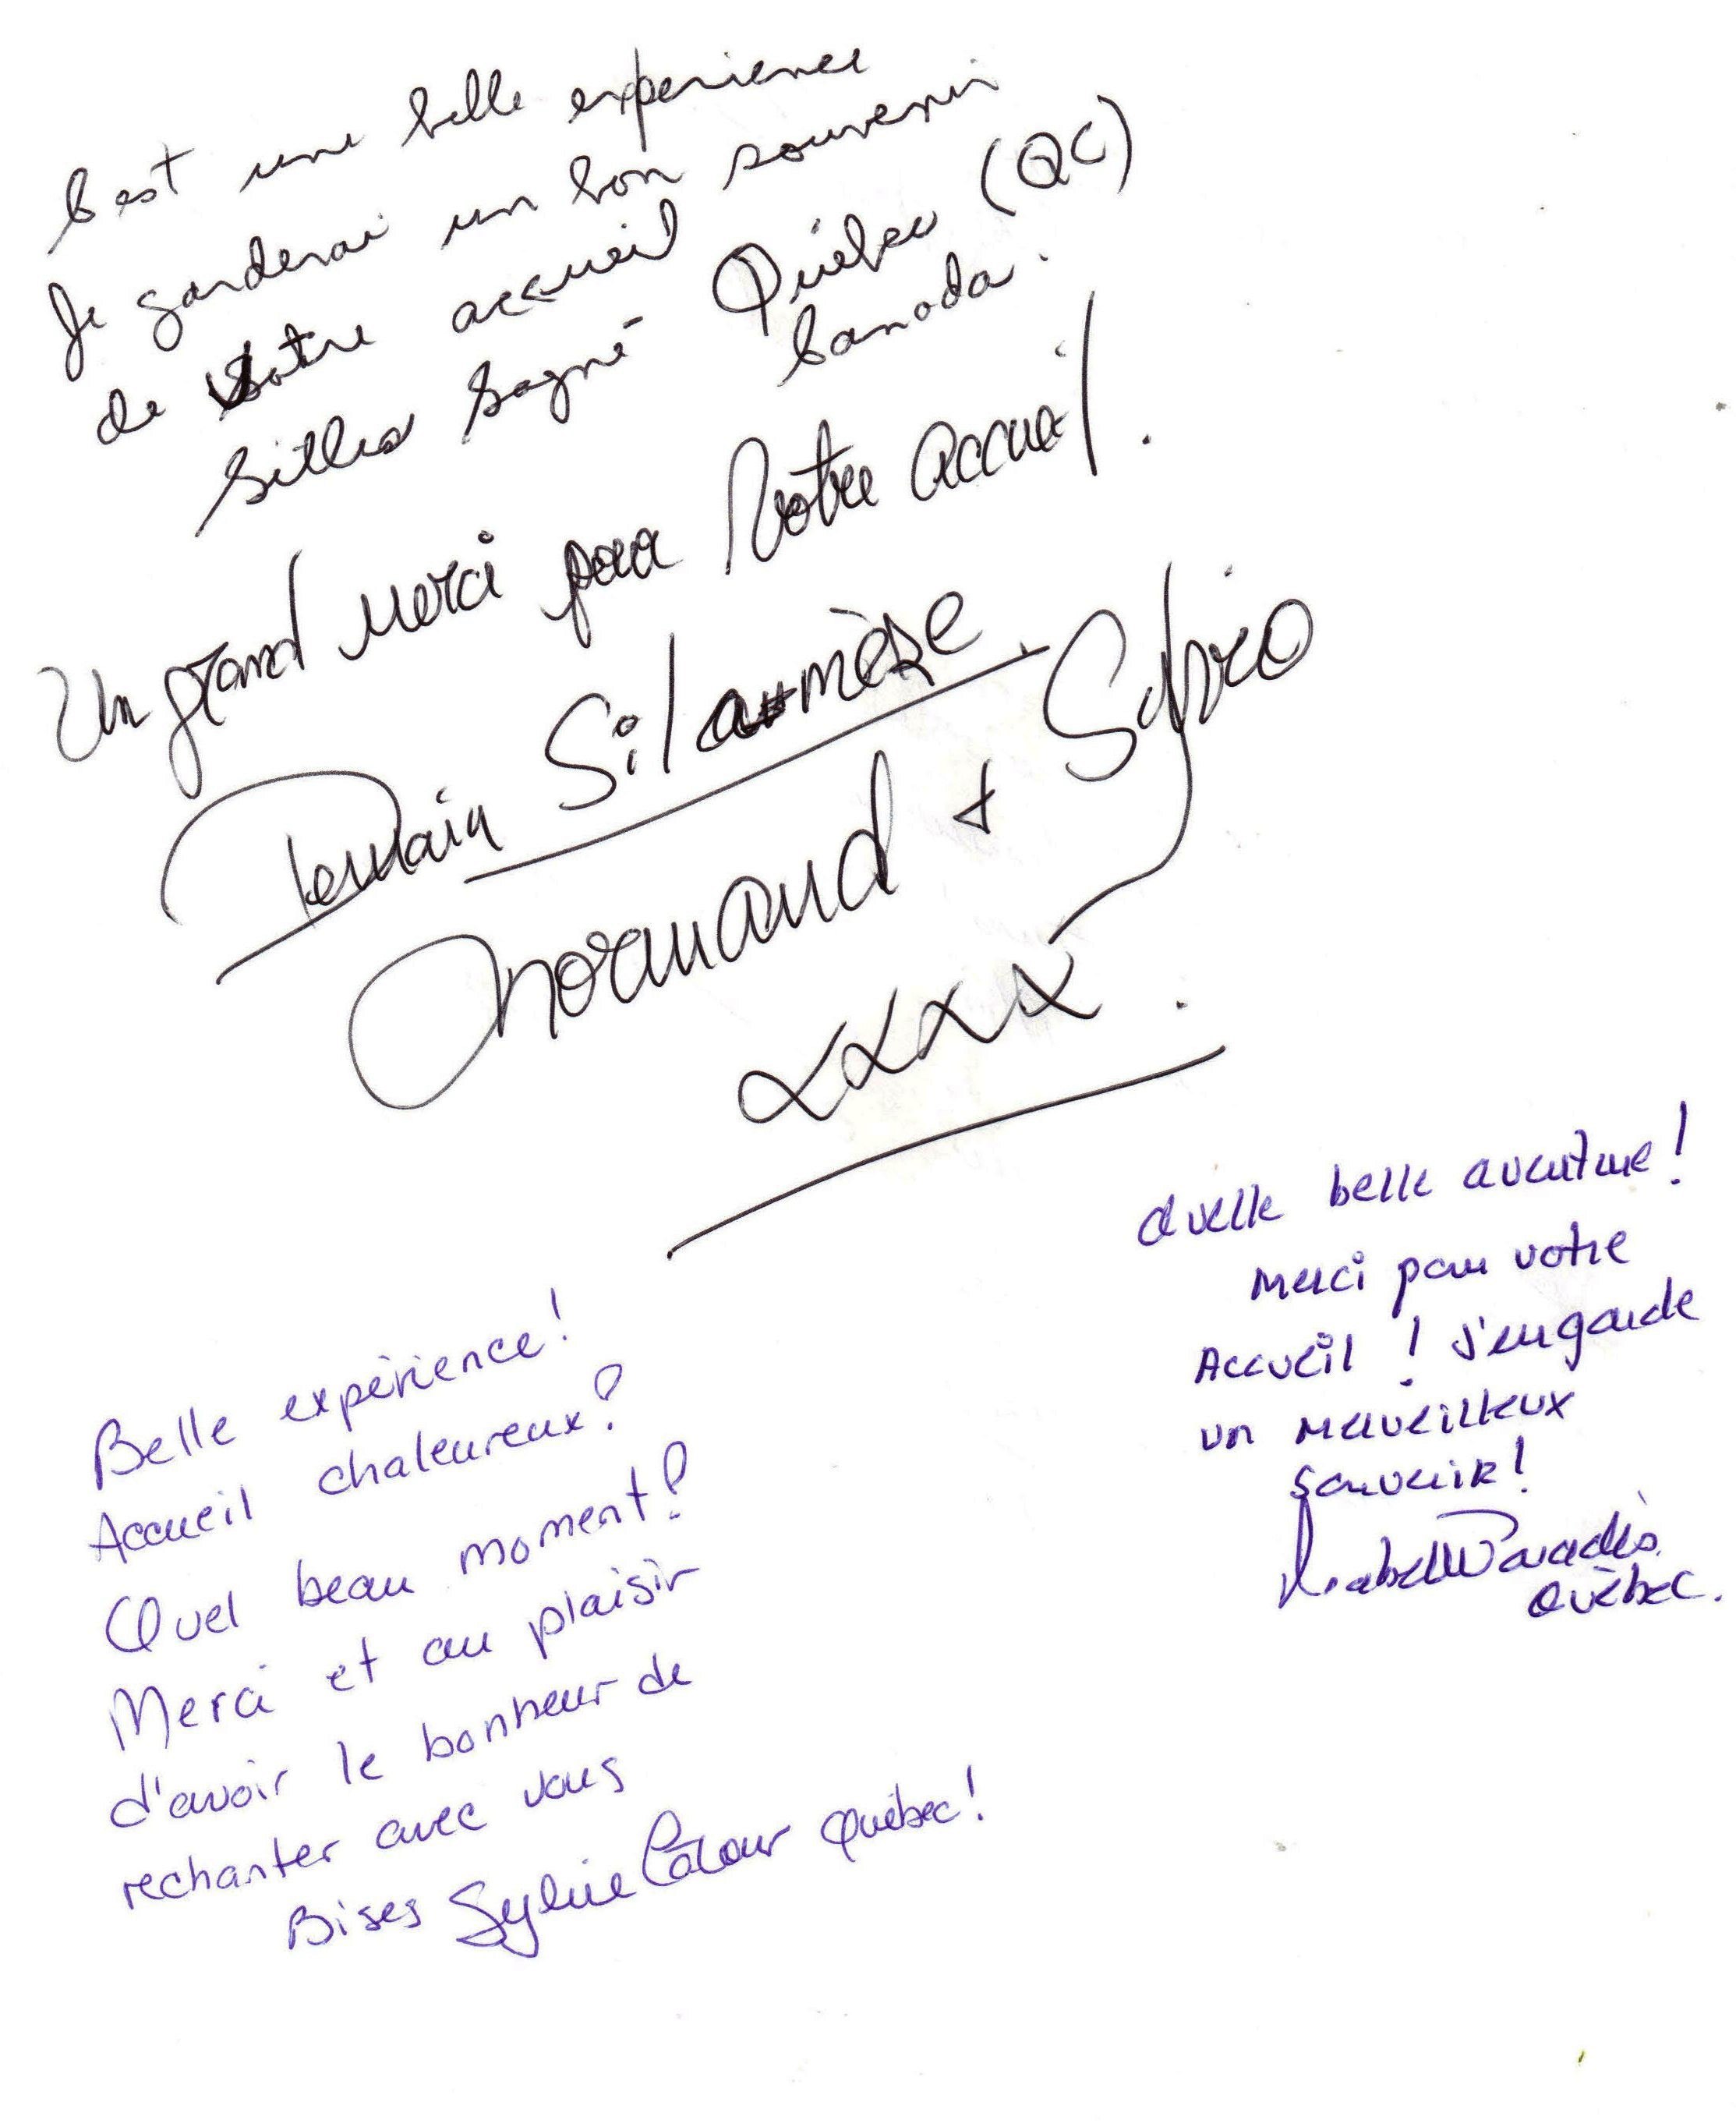 C'est une belle expérience
Je garderai un bon souvenir
de votre accueil
Gilles Gagné Québec (QC)
Canada.
Un grand merci pour Votre accueil.
Silamèse
Normand +
xxxx.
Quelle belle aventure!
merci pour votre
Accueil! J'en garde
un merveilleux
souvenir!
Isabelle Paradis
Québec.
Belle expérience!
Accueil chaleureux!
Quel beau moment!
Merci et au plaisir
d'avoir le bonheur de
rechanter avec vous
Bises Sylvie Québec!